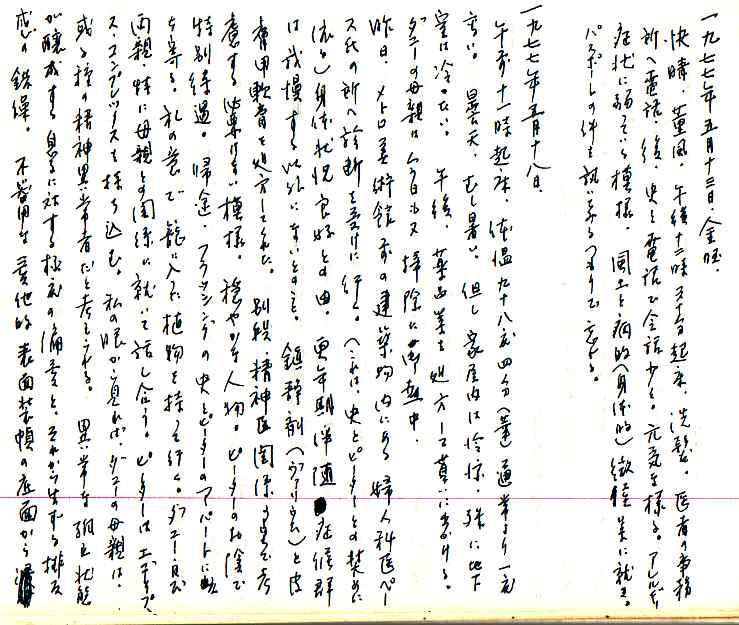 一九七七年五月十三日、金曜、
快晴、薫風、午後十二時五十分起床、洗髪。医者の事務
所へ電話。後、史と電話で会話少々。元気な様子。アレルギー
症状に弱っている模様。風土と病的（身体的）徴候等に就て。
パスポートの件を訊いてみるつもりで忘る。
一九七七年五月十八日、
午前十一時起床、体温九十八度四分（華）通常より一度
高い。曇天、むし暑い。但し家屋内は冷涼、殊に地下
室は冷い。午後、薬品等を処方して貰いに出かける。
ダニーの母親は今日も又掃除に熱中。
昨日、メトロ美術館前の建築物内にある婦人科医ペー
ス氏の所へ診断を受けに行く。（これは、史とピーターとの奨めに
依る）身体状況良好との由。更年期伴随症候群
は我慢する以外にないとのこと。鎮静剤（ヴァリウム）と皮
膚用軟膏を処方してくれた。別段、精神医関係まで考
慮する必要はない模様。穏やかな人物。ピーターのお陰で
特別待遇。帰途、フラッシングの史とピーターのアパートに
を寄る。礼の意で籠に入た植物を持って行く。ダニー・及
両親特に母親との関係に就いて話し合う。ピーターはエディプ
ス・コンプレックスを持ち込む。私の眼から見れば、ダニーの母親は、
或る種の精神異常者だと考えられる。異常な孤立状態
が醸成する息子に対する極端の偏愛と、それから生ずる排友
感の錬燥。不器用な愛他的表面装幀の底面から